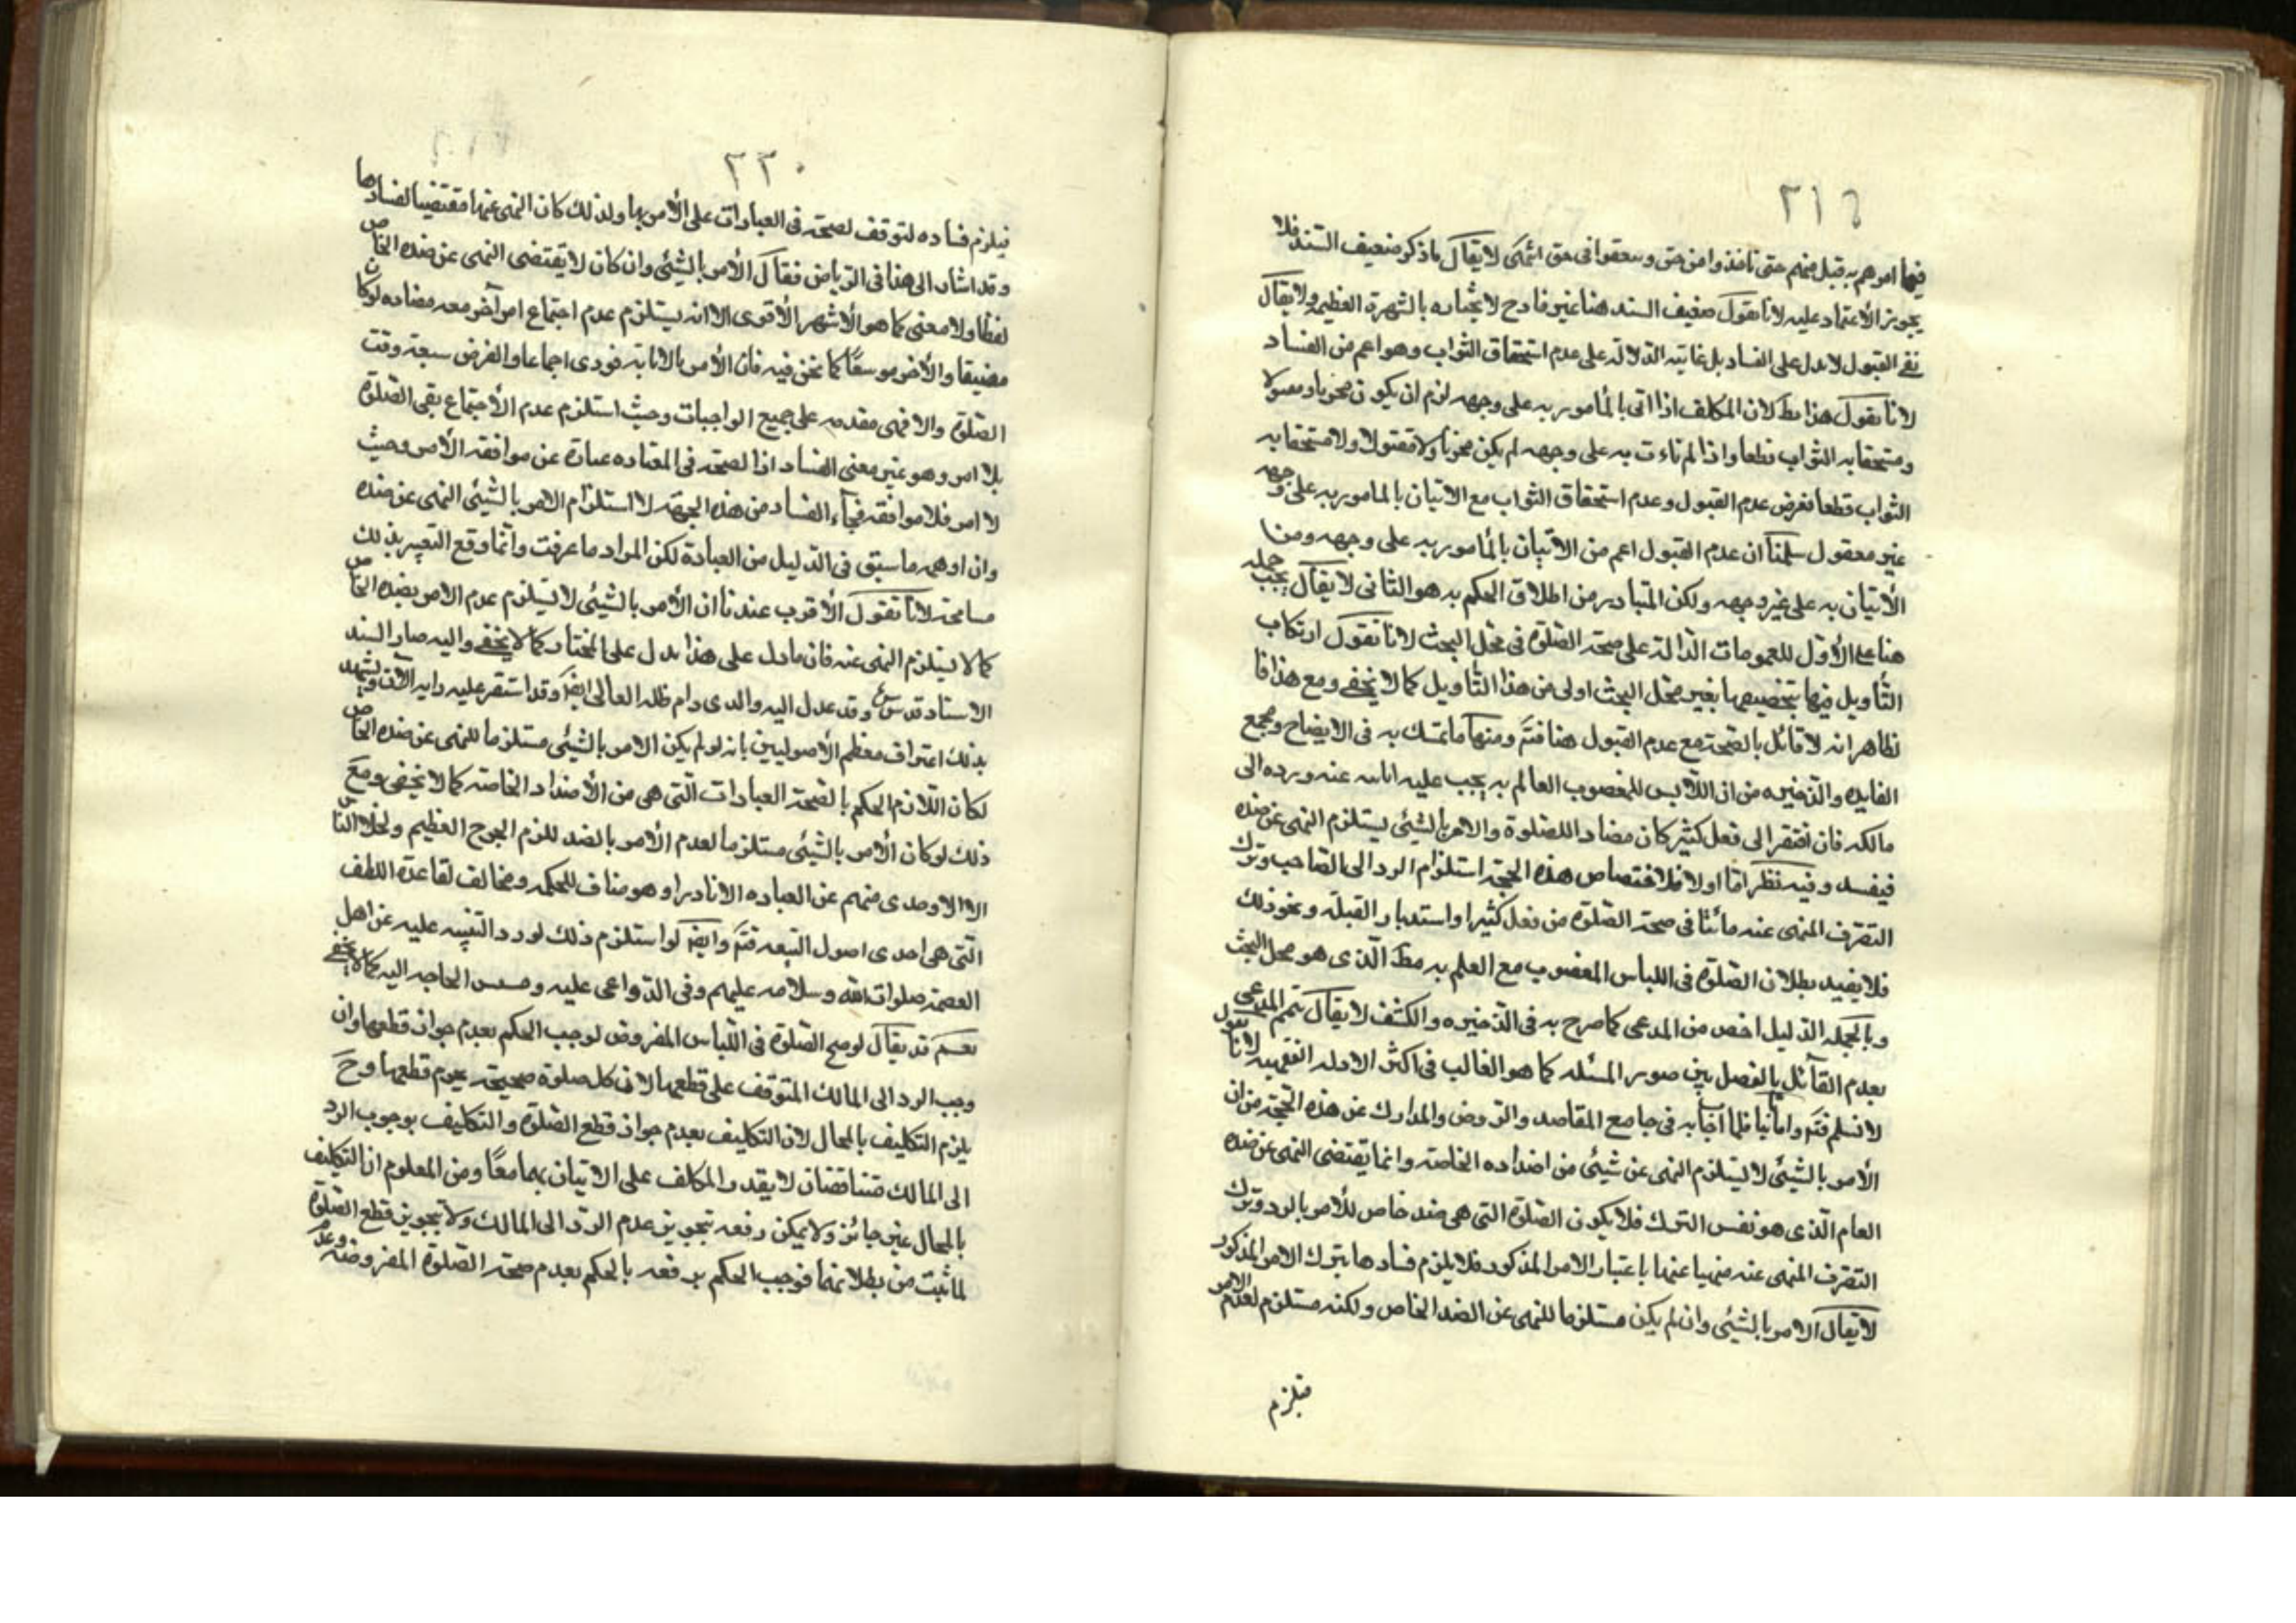 ٢١٩
فيما امرهم به قبل منهم حتى ناخذوا من حق وسعقوا فى حق ائمتكى لا يقال ما ذكر ضعيف السند فلا
يجوز الأعتماد عليه لانا نقول ضعيف السند هنا غير قادح لانجباره بالشهرة العظيمه ولا يقال
نفى القبول لا يدل على الفساد بل غايته الدلالة على عدم استحقاق الثواب وهو اعم من الفساد
لانا نقول هذا بط لان المكلف اذا اتى بالمأمور به على وجهه لزم ان يكون مجزيا ومقبولا
ومستحقا به الثواب قطعا واذا لم تاءت به على وجهه لم يكن مجزيا ولا مقبولا ولا مستحقا به
الثواب قطعا نفرض عدم القبول وعدم استحقاق الثواب مع الاتيان بالمامور به على وجهه
غير معقول سلمنا ان عدم القبول اعم من الاتيان بالمأمور به على وجهه ومن
الأتيان به على غير وجهه ولكن المتبادر من اطلاق الحكم به هو الثانى لا يقال يجب حمله
هنا على الأول للعمومات الدالة على صحة الصلوة فى محل البحث لانا نقول ارتكاب
التأويل فيها بتخصيصها بغير محل البحث اولى من هذا التأويل كما لا يخفى ومع هذا فا
لظاهر انه لا قائل بالصحة مع عدم القبول هنا فتم ومنها ما تمسك به فى الايضاح ومجمع
الفايده والذخيره من ان اللابس للمغصوب العالم به يجب عليه ابانته عنه ورده الى
مالكه فان افتقر الى فعل كثير كان مضادا للصلوة والامر بالشيئ يستلزم النهى عن ضده
فيفسد وفيه نظر اما اولا فلاختصاص هذه الحجة استلزام الرد الى الصاحب وترك
التصرف المنهى عنه مائنا فى صحة الصلوة من فعل كثير او استدبار القبلة ونحو ذلك
فلا يفيد بطلان الصلوة فى اللباس المغصوب مع العلم به مط الذى هو محل البحث
وبالجمله الدليل اخص من المدعى كما صرح به فى الذخيره والكشف لا يقال يتم المدعى
بعدم القائل بالفصل بين صور المسئله كما هو الغالب فى اكثر الادله الفقهيه لانا نقول
لا نسلم فتم واما ثانيا فلما اجاب به فى جامع المقاصد والروض والمدارك عن هذه الحجة من ان
الأمر بالشيئ لا يستلزم النهى عن شيئ من اضداده الخاصة وانما يقتضى النهى عن ضده
العام الذى هو نفس الترك فلا يكون الصلوة التى هى ضد خاص للأمر بالرد وترك
التصرف المنهى عنه منهيا عنها باعتبار الامر المذكور فلا يلزم فسادها بترك الامر المذكور
لا يقال الامر بالشيئ وان لم يكن مستلزما للنهى عن الضد الخاص ولكنه مستلزم لعدم الامر
فيلزم
٢٢٠
فيلزم فساده لتوقف لصحة فى العبادات على الأمر بها ولذلك كان النهى عنها مقتضيا لفسادها
وقد اشار الى هذا فى الرياض فقال الأمر بالشيئ وان كان لا يقتضى النهى عن ضده الخاص
لفظا ولا معنى كما هو الأشهر الأقوى الا انه يستلزم عدم اجتماع امر آخر معه مضاده لو كان
مضيقا والأخر موسعًا كما نحن فيه فان الأمر بالابانة فورى اجماعا والفرض سعة وقت
الصلوة والا فهى مقدمه على جميع الواجبات وحيث استلزم عدم الأجتماع بقى الصلوة
بلا امر وهو عين معنى الفساد اذا لصحة فى العباده عبارة عن موافقة الأمر وحيث
لا امر فلا موافقة فجاء الفساد من هذه الجهة لا استلزام الامر بالشيئ النهى عن ضده
وان اوهمه ما سبق فى الدليل من العبادة لكن المراد ما عرفت وانما وقع التعبير بذلك
مسامحة لانا نقول الأقرب عندنا ان الأمر بالشيئ لا يستلزم عدم الامر بضده الخاص
كما لا يستلزم النهى عنه فان ما دل على هذا يدل على المختار كما لا يخفى واليه صار السند
الاستاد قدس سره وقد عدل اليه والدى دام ظله العالى ايضا وقد استقر عليه رايه الآن ويشهد
بذلك اعتراف معظم الأصوليين بانه لو لم يكن الامر بالشيئ مستلزما للنهى عن ضده الخاص
لكان اللازم الحكم بالصحة العبادات التى هى من الأضداد الخاصة كما لا يخفى ومع
ذلك لو كان الأمر بالشيئ مستلزما لعدم الأمر بالضد للزم الحرج العظيم ولخلا الناس
الا الاوحدى منهم عن العباده الا نادرا وهو مناف للحكمه ومخالف لقاعدة اللطف
التى هى احدى اصول الشيعه فتم وايضا لو استلزم ذلك لورد التنبيه عليه عن اهل
العصمة صلوات الله وسلامه عليهم وفى الدواعى عليه ومسيس الحاجه اليه كما لا يخفى
نعم قد يقال لو صح الصلوة فى اللباس المفروض لوجب الحكم بعدم جواز قطعها وان
وجب الرد الى المالك المتوقف على قطعها لان كل صلوة صحيحة يحرم قطعها وح
يلزم التكليف بالمحال لان التكليف بعدم جواز قطع الصلوة والتكليف بوجوب الرد
الى المالك متناقضان لا يقدر المكلف على الاتيان بهما معًا ومن المعلوم ان التكليف
بالمحال غير جائز ولا يمكن رفعه بتجويز عدم الرد الى المالك ولا بتجويز قطع الصلوة
لما ثبت من بطلانهما فوجب الحكم برفعه بالحكم بعدم صحة الصلوة المفروضة وعدم